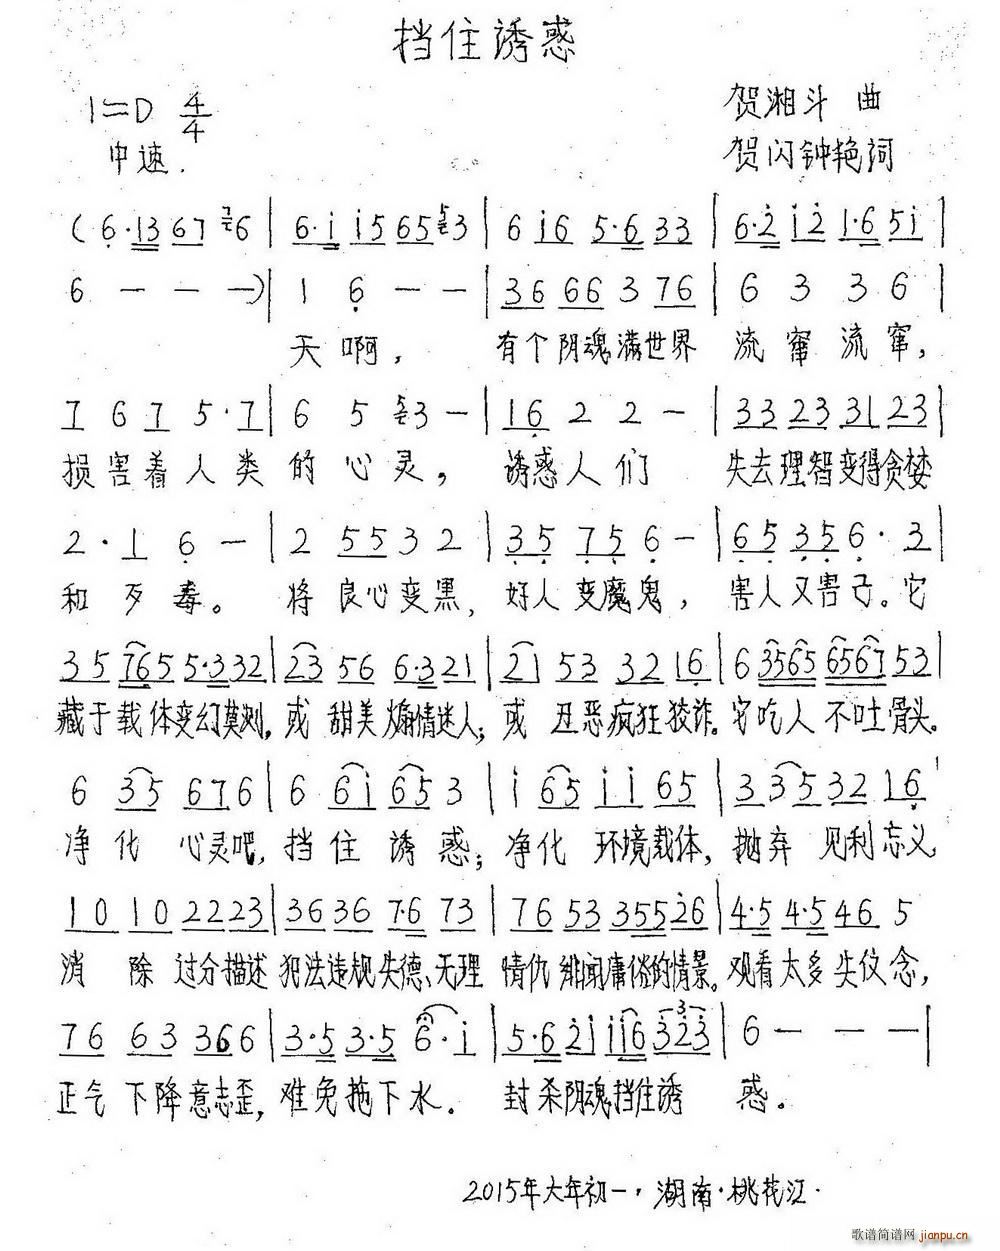 挡住诱惑
1=D 4/4
贺湘斗 曲
中速.
贺闪钟艳词
(6·13 67 6 | 6·i i5 65 3 | 6 i6 5·6 33 | 6·2 i2 1·6 5i |
6 — — —) | 1 6 — — | 36 66 3 76 | 6 3 3 6 |
天啊, 有个阴魂满世界 流窜流窜,
7 6 7 5·7 | 6 5 3 — | 16 2 2 — | 33 23 31 23 |
损害着人类的心灵, 诱惑人们 失去理智变得贪婪
2·1 6 — | 2 55 3 2 | 35 75 6 — | 65 35 6·3 |
和歹毒。将良心变黑, 好人变魔鬼, 害人又害己。它
35 765 5·332 | 23 56 6·321 | 21 53 32 16 | 6 3565 6567 53 |
藏于载体变幻莫测,或甜美煽情迷人;或丑恶疯狂狡诈。它吃人不吐骨头。
6 35 676 | 6 6i 65 3 | i 65 ii 65 | 3 35 32 16 |
净化心灵吧,挡住诱惑;净化环境载体,抛弃见利忘义
10 10 22 23 | 36 36 7·6 73 | 76 53 355 26 | 4·5 4·5 46 5
消除过分描述犯法违规失德、无理情仇绯闻庸俗的情景。观看太多失仪念,
76 63 366 6 | 3·5 3·5 6·i | 5·6 2i ii6 323 | 6 — — — |
正气下降意志歪,难免拖下水. 封杀阴魂挡住诱惑。
2015年大年初一,湖南·桃花江.
歌谱简谱网 jianpu.cn